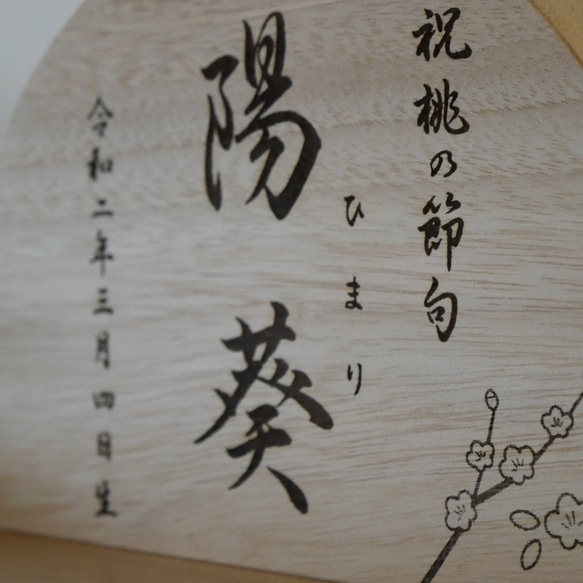 祝桃の節句
ひまり
陽葵
令和二年三月四日生